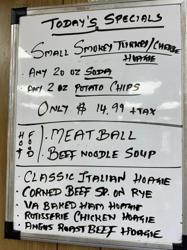 TODAY'S SPECIALS
SMALL SMOKEY TURKEY/CHEESE
HOAGIE
• ANY 20 OZ SODA
• ANY 2 OZ POTATO CHIPS
ONLY $14.99 +TAX
HOT
FOOD
• MEATBALL
• BEEF NOODLE SOUP
• CLASSIC ITALIAN HOAGIE
• CORNED BEEF SP. ON RYE
• VA BAKED HAM HOAGIE
• ROTISSERIE CHICKEN HOAGIE
• ANGUS ROAST BEEF HOAGIE